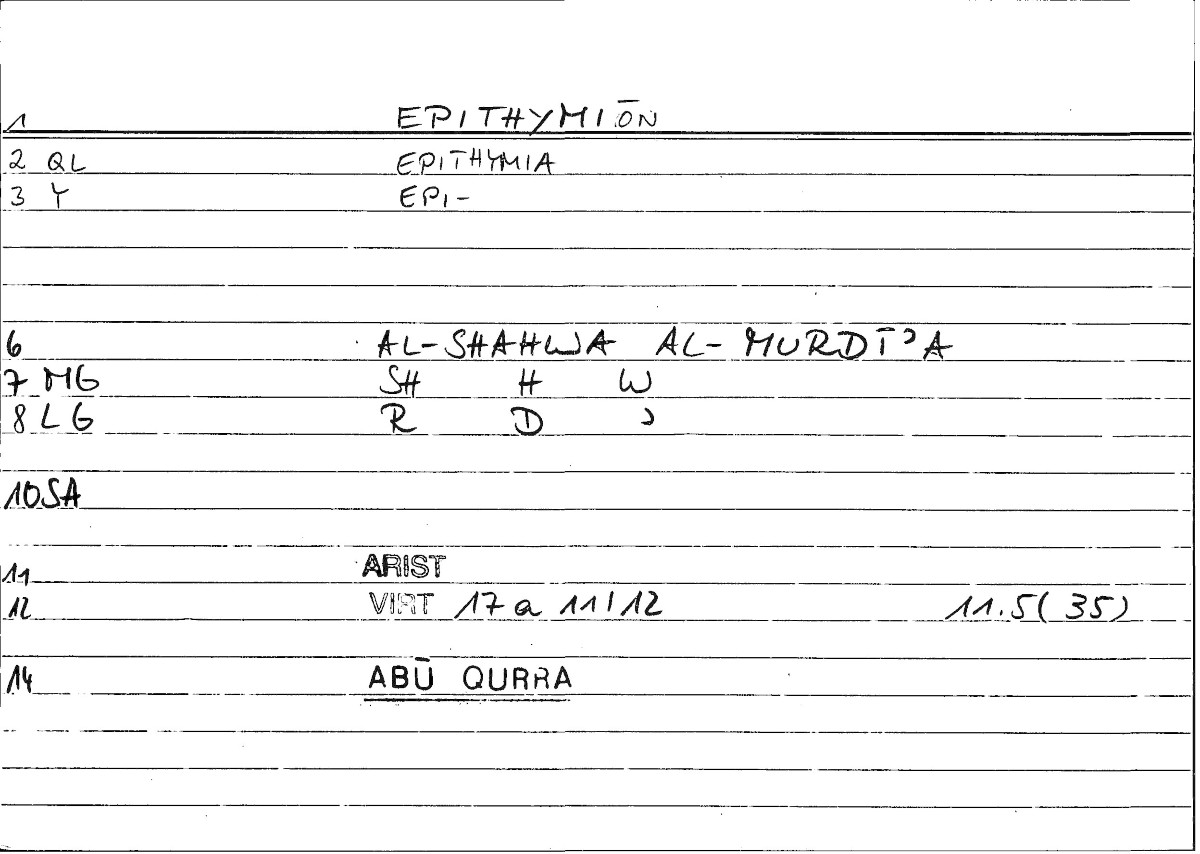 1 EPITHYMIŌN
2 QL EPITHYMIA
3 Y EPI-
6 AL-SHAHWA AL-MURDĪʾA
7 MG SH H W
8 LG R D ʾ
10 SA
11 ARIST
12 VIRT 17 a 11/12 11.5(35)
14 ABŪ QURRA